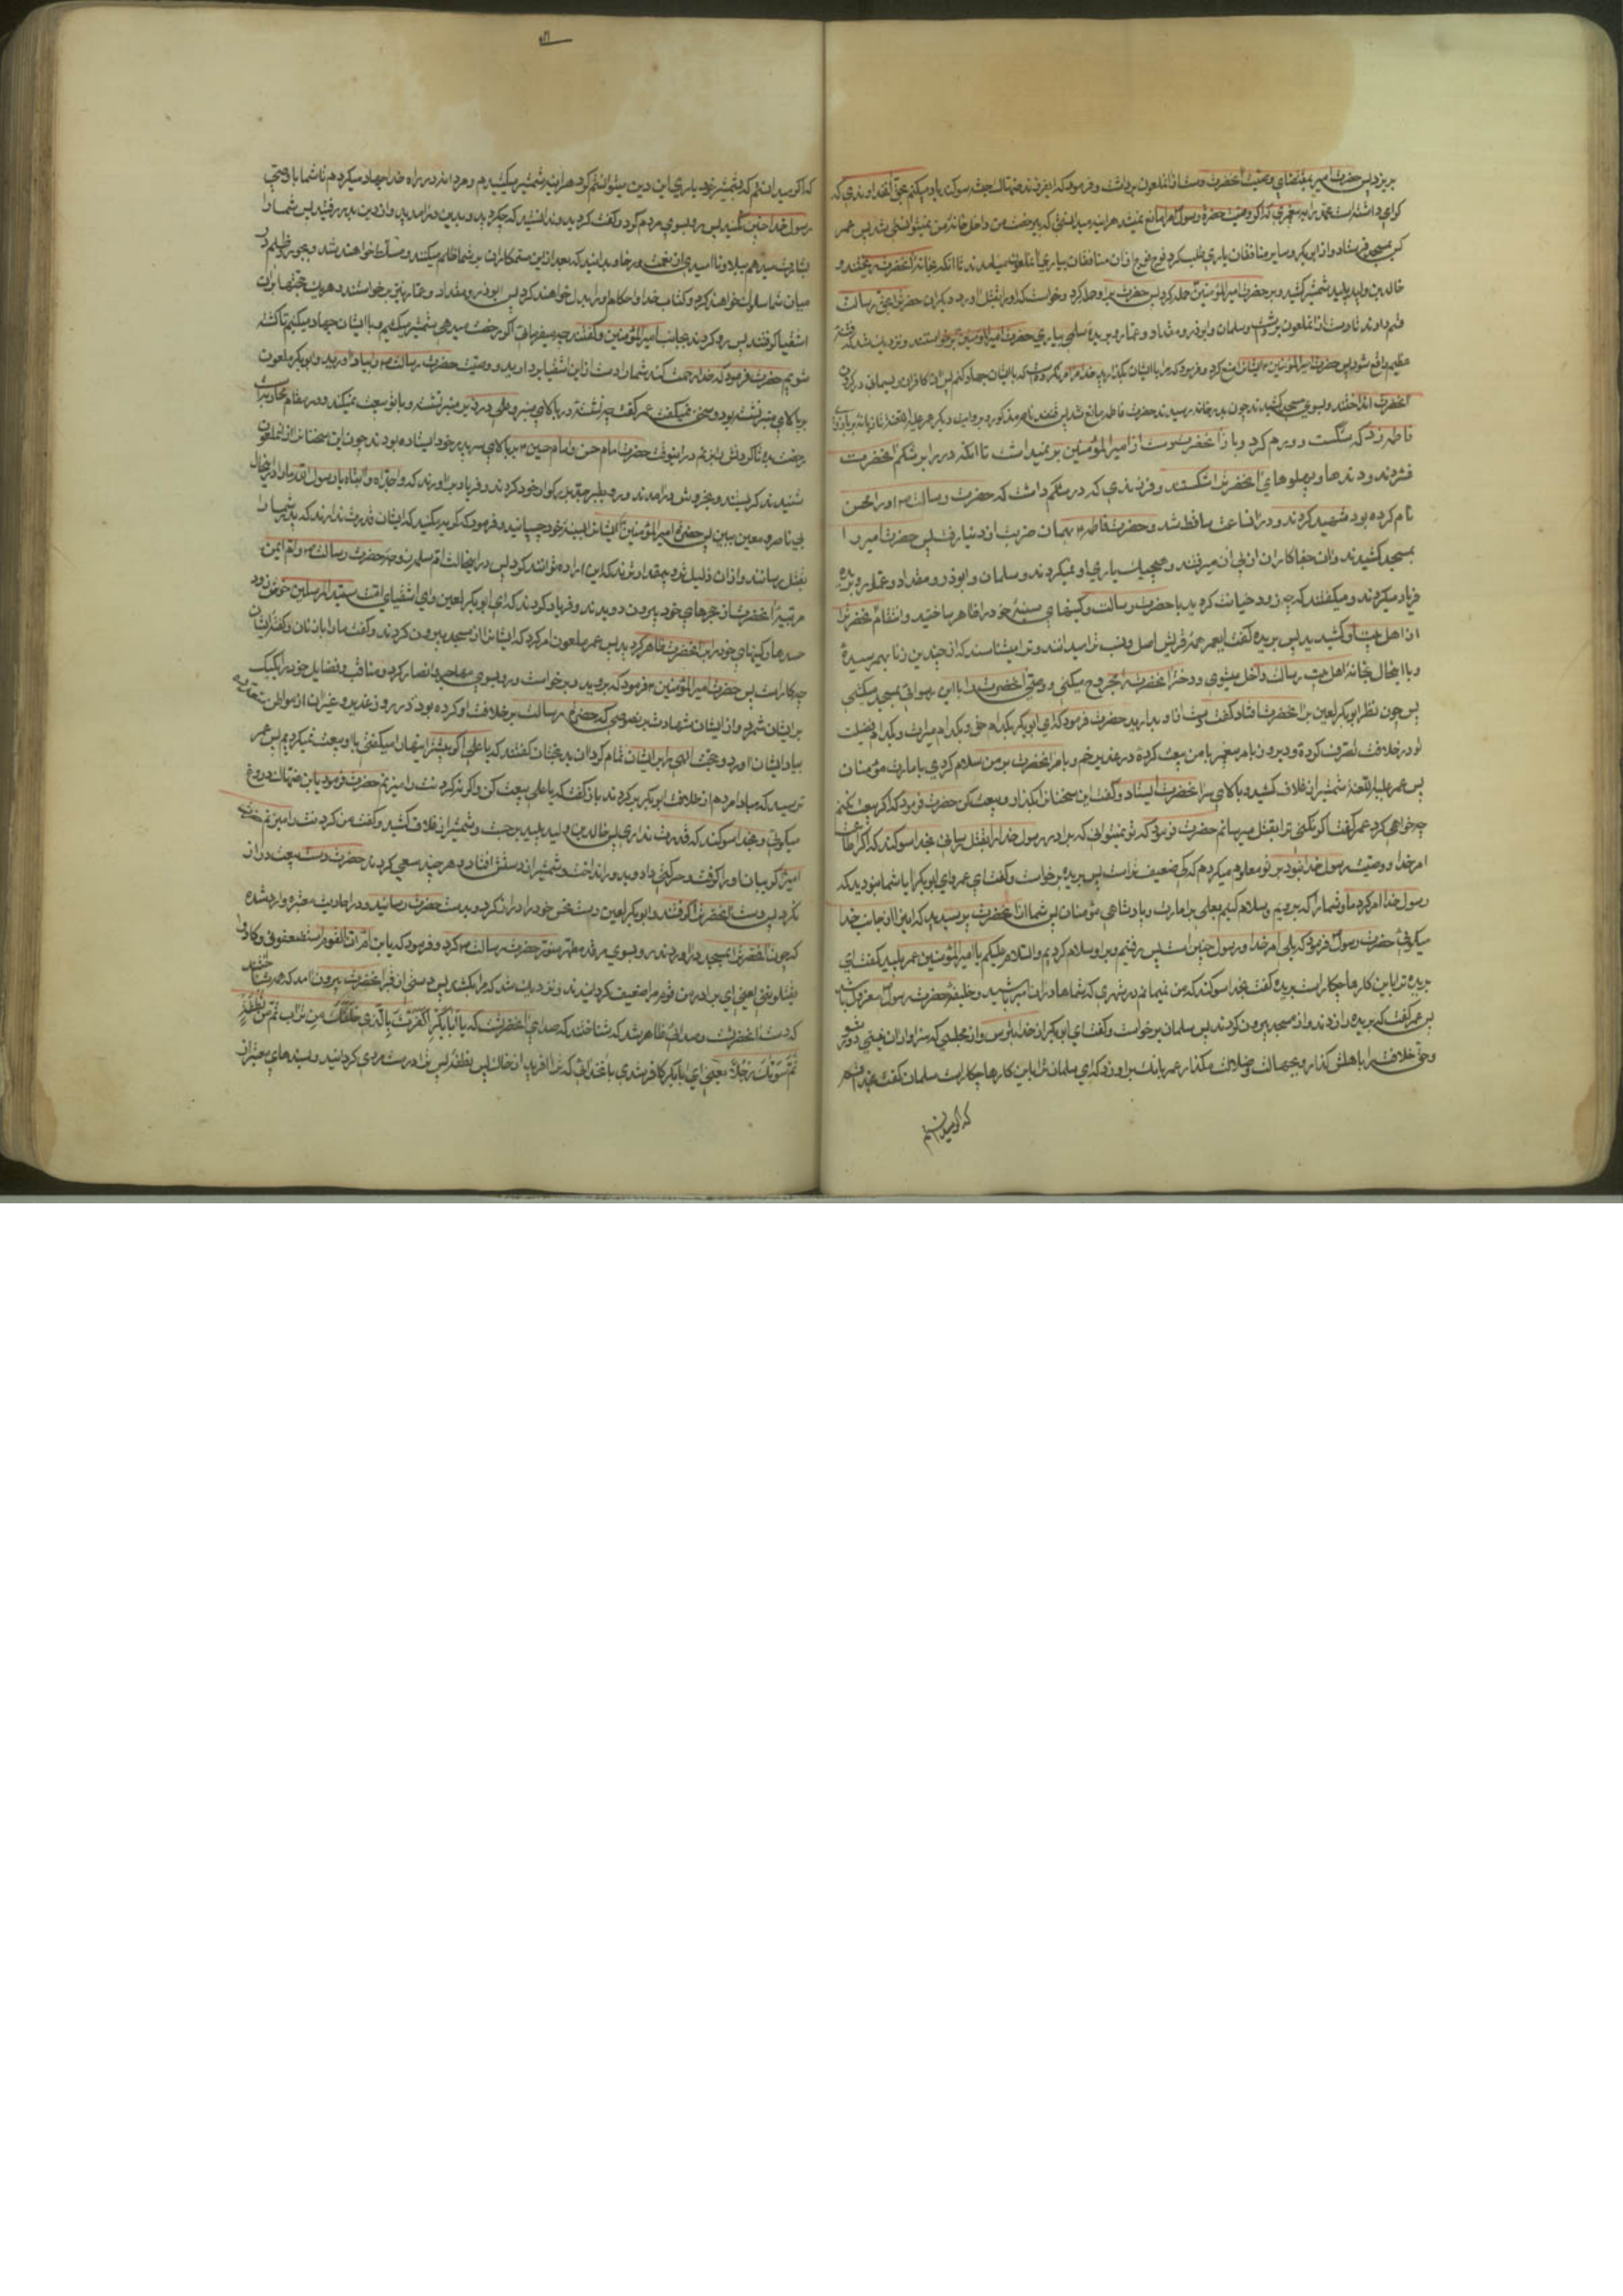 بریزد پس حضرت امیر بمقتضای وصیت آنحضرت دست از آنملعون برداشت و فرمود که ای فرزند ضهاک حبشیه سوکند یاد میکنم بحق آنخداوندی که
کرامی داشته است محمد را به پیغمبری که اکر وصیت حضرت رسول مرا مانع نمیشد هراینه میدانستی که بیرخصت من داخل خانهٔ من نمیتوانستی شد پس عمر
کس بمسجد فرستاد و از ابوبکر و سایر منافقان یاری طلب کرد فوج فوج از آن منافقان بیاری آنملعون میامدند تا آنکه بخانهٔ آنحضرت ریختند و
خالد بن ولید پلید شمشیر کشید و بر حضرت امیرالمؤمنین حمله کرد پس حضرت بر او حمله کرد و خواست که او را بقتل آورد و دیکران حضرت را بحق رسالت
قسم دادند تا دست از آنملعون برداشت و سلمان و ابوذر و مقداد و عمار و بریدهٔ اسلمی بیاری حضرت امیرالمؤمنین برخواستند و نزدیک شد که فتنهٔ
عظیم واقع شود پس حضرت امیرالمؤمنین ایشانرا منع کرد و فرمود که مرا با ایشان بکذارید خدا مرا امر نکرده است که با ایشان جهاد کنم پس آن کافران ریسمانی در کردن
آنحضرت انداختند و بسوی مسجد کشیدند چون بدر خانه رسیدند حضرت فاطمه مانع شد پس قنفذ و بروایت دیکر عمر علیه اللعنه تازیانه بر بازوی
فاطمه زد که شکست و ورم کرد و باز آنحضرت دست از امیرالمؤمنین بر نمیداشت تا آنکه در را بر شکم آنحضرت
فشردند و دندها و پهلوهای آنحضرت را شکستند و فرزندی که در شکم داشت که حضرت رسالت او را محسن
نام کرده بود شهید کردند و در آنساعت ساقط شد و حضرت فاطمه بهمان ضربت از دنیا رفت پس حضرت امیر را
بمسجد کشیدند و آن جفاکاران از پی آن میرفتند و هیچیک یاری او نمیکردند و سلمان و ابوذر و مقداد و عمار و بریده
فریاد میکردند و میکفتند که چه زود خیانت کردید با حضرت رسالت و کینهای سینهٔ خود را ظاهر ساختید و انتقام آنحضرت را
از اهل بیت او کشیدید پس بریده کفت ای عمر همهٔ قریش اصل و نسب ترا میدانند و ترا میشناسند که از چندین زنا بهم رسیدهٔ
و با اینحال بخانهٔ اهل بیت رسالت داخل میشوی و دختر آنحضرت را مجروح میکنی و وصی آنحضرت را با این رسوائی بمسجد میکشی
پس چون نظر ابوبکر لعین بر آنحضرت افتاد کفت دست از او بدارید حضرت فرمود که ای ابوبکر بکدام حق و بکدام میراث و بکدام فضیلت
تو در خلافت تصرف کردهٔ و دیروز بامر پیغمبر با من بیعت کردهٔ در غدیر خم و بامر آنحضرت بر من سلام کردی بامارت مؤمنان
پس عمر علیه اللعنه شمشیر از غلاف کشید و بالای سر آنحضرت ایستاد و کفت این سخنان را بکذار و بیعت کن حضرت فرمود که اکر بیعت نکنم
چه خواهی کرد عمر کفت اکر نکنی ترا بقتل میرسانم حضرت فرمود که تو نمیتوانی که برادر رسول خدا را بقتل رسانی بخدا سوکند که اکر اطاعت
امر خدا و وصیت رسول خدا نبود بر تو معلوم میکردم که کی ضعیف تر است پس بریده برخواست و کفت ای عمر و ای ابوبکر آیا شما نبودید که
رسول خدا امر کرد ما و شما را که برویم و سلام کنیم بعلی بر امارت و پادشاهی مؤمنان پس شما از آنحضرت پرسیدید که این را از جانب خدا
میکوئی حضرت رسول فرمود که بلی امر خدا و رسول چنین است پس رفتیم و بر او سلام کردیم و السلام علیکم یا امیرالمؤمنین عمر پلید کفت ای
بریده ترا باین کارها چکار است بریده کفت بخدا سوکند که من نمیمانم در شهری که شماها در آن امیر باشید و خلیفهٔ حضرت رسول معزول باشد
پس عمر کفت که بریده را زدند و از مسجد بیرون کردند پس سلمان برخواست و کفت ای ابوبکر از خدا بترس و از مجلسی که سزاوار آن نیستی دور شو
و حق خلافت را باهلش کذار و بجهالت و ضلالت مکذار عمر بانک بر او زد که ای سلمان ترا باین کارها چکار است سلمان کفت بخدا قسم
که اکر میدانستم
که اکر میدانستم که بشمشیر خود یاری این دین میتوانستم کرد هراینه شمشیر میکشیدم و مردانه در راه خدا جهاد میکردم تا شما با وصی
رسول خدا چنین نکنید پس رو بسوی مردم کرد و کفت کردید و ندانستید که چکردید و بدین درآمدید و از دین بدر رفتید پس شما را
بشارت میدهم ببلا و ناامیدی از نعمت و رخا و بدانید که بعد از این ستمکاران بر شما ظلم میکنند و مسلط خواهند شد و بجور و ظلم در
میان شما سلوک خواهند کرد و کتاب خدا و احکام او را بدل خواهند کرد پس ابوذر و مقداد و عمار نیز برخواستند و هر یک حجتها بر آن
اشقیا کرفتند پس رو کردند بجانب امیرالمؤمنین و کفتند چه میفرمائی اکر رخصت میدهی شمشیر میکشیم و با ایشان جهاد میکنیم تا کشته
شویم حضرت فرمود که خدا رحمت کند شما را دست از این اشقیا بردارید و وصیت حضرت رسالت را بیاد آورید و ابوبکر ملعون
بر بالای منبر نشسته بود و سخن نمیکفت عمر کفت چه نشستهٔ در بالای منبر و علی در زیر منبر نشسته و با تو بیعت نمیکند و در مقام محاربه است
رخصت بده تا کردنش را بزنم در اینوقت حضرت امام حسن و امام حسین بر بالای سر پدر خود ایستاده بودند چون این سخنان از آنملعون
شنیدند کریستند و بخروش درآمدند و رو بقبر جد بزرکوار خود کردند و فریاد برآوردند که وا جداه وا ابتاه یا رسول الله ما را در اینحال
بی ناصر و معین ببین پس حضرت امیرالمؤمنین ایشانرا بسینهٔ خود چسپانید و فرمود که کریه مکنید که ایشان قدرت ندارند که پدر شما را
بقتل رسانند و از آن ذلیل تر و بیمقدارترند که این اراده توانند کرد پس در اینحالت ام سلمه زوجهٔ حضرت رسالت و ام ایمن
مربیهٔ آنحضرت از حجرهای خود بیرون دویدند و فریاد کردند که ای ابوبکر لعین و ای اشقیای امت سید المرسلین چه زود
حسدها و کینهای خود را بر آنحضرت ظاهر کردید پس عمر ملعون امر کرد که ایشانرا از مسجد بیرون کردند و کفت ما را با زنان و کفتهٔ ایشان
چه کار است پس حضرت امیرالمؤمنین فرمود که بروید و برخواست و رو بسوی مهاجر و انصار کرد و مناقب و فضایل خود را یک یک
بر ایشان شمرد و از ایشان شهادت بر نصوصی که حضرت رسالت بر خلافت او کرده بود در روز غدیر و غیر آن از مواطن متعدده
بیاد ایشان آورد و حجت الهی را بر ایشان تمام کرد آن بدبختان کفتند که یا علی اکر پیشتر اینها را میکفتی با او بیعت نمیکردیم پس عمر
ترسید که مبادا مردم از خلافت ابوبکر برکردند باز کفت که یا علی بیعت کن و اکر نه کردنت را میزنم حضرت فرمود یا بن ضهاک دروغ
میکوئی و بخدا سوکند که قدرت نداری پس خالد بن ولید پلید برجست و شمشیر از غلاف کشید و کفت من کردنت را میزنم حضرت
امیر کریبان او را کرفت و حرکتی داد و بدور انداخت و شمشیر از دستش افتاد و هر چند سعی کردند حضرت دست ببیعت دراز
نکرد پس دست آنحضرت را کرفتند و ابوبکر لعین دست نحس خود را دراز کرد و بدست حضرت رسانید و در احادیث معتبره وارد شده
که چون آنحضرت را بمسجد درآوردند رو بسوی مرقد مطهر منور حضرت رسالت کرد و فرمود که یا بن ام ان القوم استضعفونی و کادوا
یقتلوننی یعنی ای برادر من قوم مرا ضعیف کردانیدند و نزدیک شد که مرا بکشند پس دستی از قبر آنحضرت بیرون آمد که همه شناختند
که دست آنحضرت و صدائی ظاهر شد که شناختند که صدای آنحضرتست که یا ابا بکر اکفرت بالذی خلقک من تراب ثم من نطفة
ثم سویک رجلا یعنی ای ابابکر کافر شدی بآنخدائی که ترا آفرید از خاک پس از نطفه پس ترا درست مردی کردانید و بسندهای معتبر از